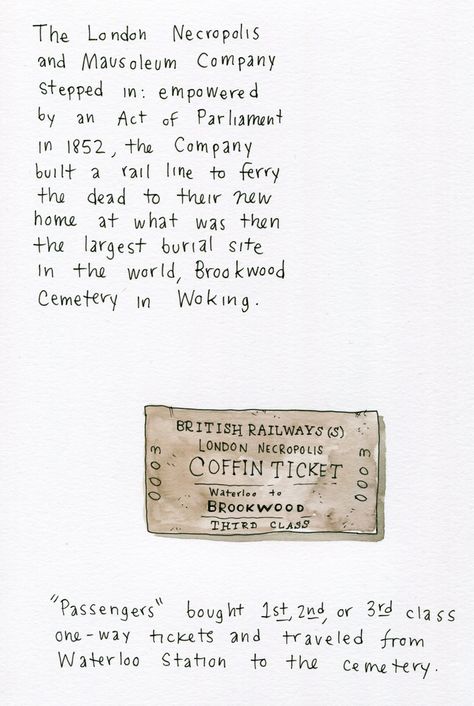 The London Necropolis
and Mausoleum Company
stepped in: empowered
by an Act of Parliament
in 1852, the Company
built a rail line to ferry
the dead to their new
home at what was then
the largest burial site
in the world, Brookwood
Cemetery in Woking.
BRITISH RAILWAYS (S)
LONDON NECROPOLIS
COFFIN TICKET
Waterloo to
BROOKWOOD
THIRD CLASS
0003
0003
"Passengers" bought 1st, 2nd, or 3rd class
one-way tickets and traveled from
Waterloo Station to the cemetery.